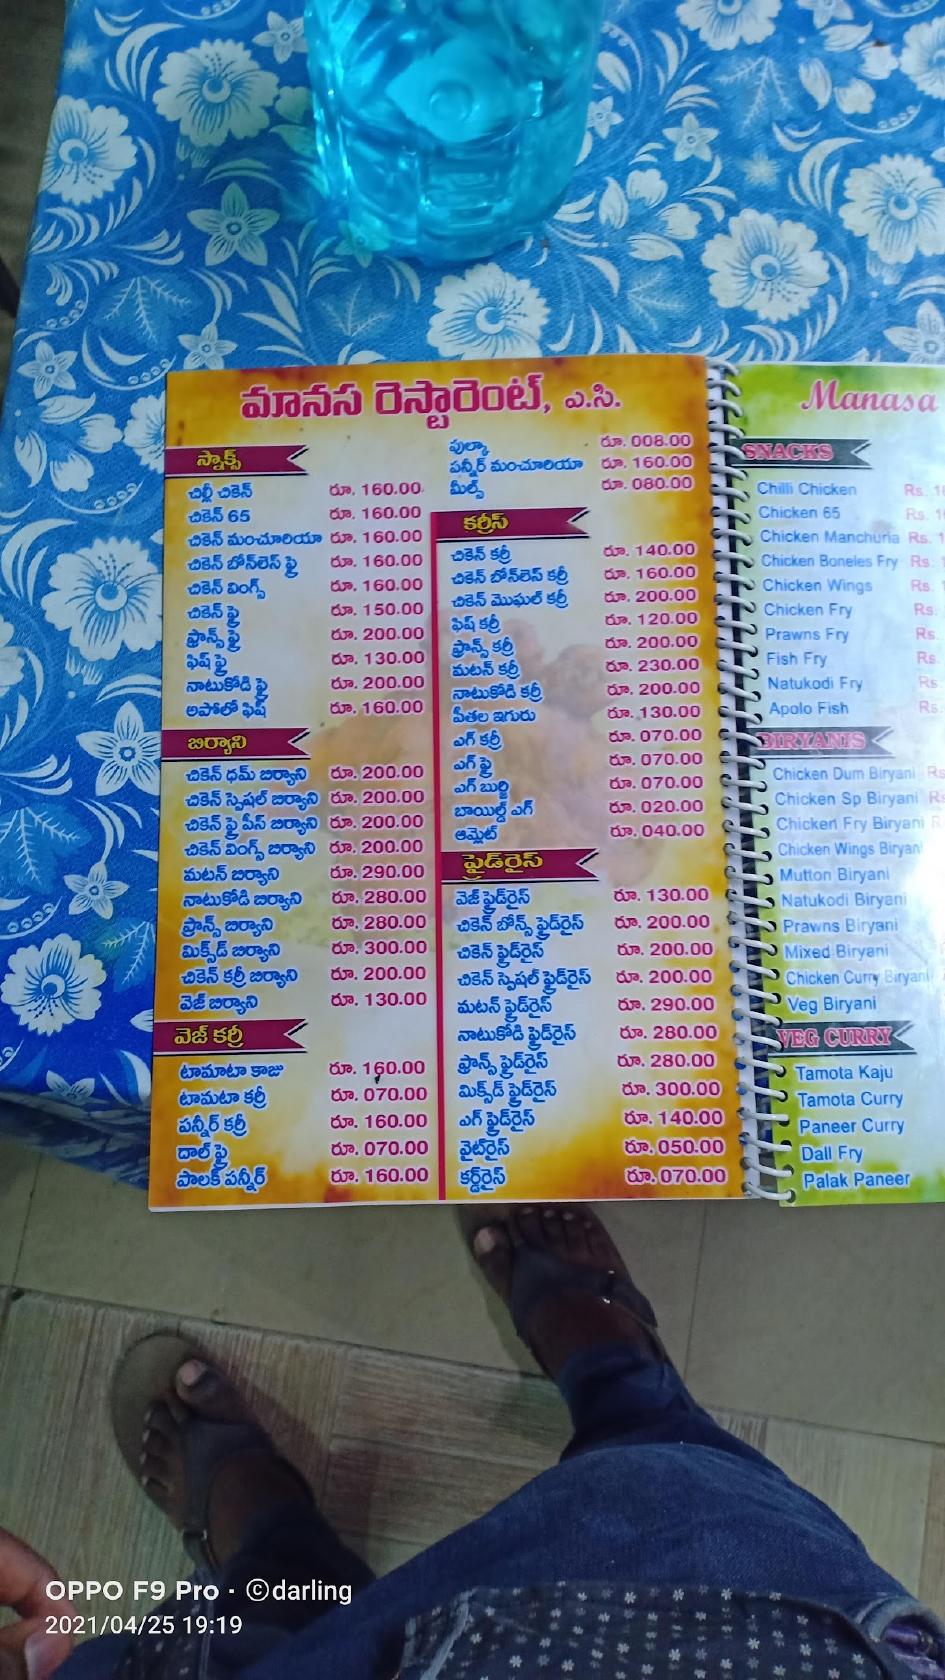 మానస రెస్టారెంట్, ఎ.సి.
స్నాక్స్
చిల్లీ చికెన్ రూ. 160.00
చికెన్ 65 రూ. 160.00
చికెన్ మంచూరియా రూ. 160.00
చికెన్ బోన్‌లెస్ ఫ్రై రూ. 160.00
చికెన్ వింగ్స్ రూ. 160.00
చికెన్ ఫ్రై రూ. 150.00
ఫ్రాన్స్ ఫ్రై రూ. 200.00
ఫిష్ ఫ్రై రూ. 130.00
నాటుకోడి ఫ్రై రూ. 200.00
అపోలో ఫిష్ రూ. 160.00
బిర్యాని
చికెన్ ధమ్ బిర్యాని రూ. 200.00
చికెన్ స్పెషల్ బిర్యాని రూ. 200.00
చికెన్ ఫ్రై పీస్ బిర్యాని రూ. 200.00
చికెన్ వింగ్స్ బిర్యాని రూ. 200.00
మటన్ బిర్యాని రూ. 290.00
నాటుకోడి బిర్యాని రూ. 280.00
ఫ్రాన్స్ బిర్యాని రూ. 280.00
మిక్స్‌డ్ బిర్యాని రూ. 300.00
చికెన్ కర్రీ బిర్యాని రూ. 200.00
వెజ్ బిర్యాని రూ. 130.00
వెజ్ కర్రీ
టామాటా కాజు రూ. 160.00
టామటా కర్రీ రూ. 070.00
పన్నీర్ కర్రీ రూ. 160.00
దాల్ ఫ్రై రూ. 070.00
పాలక్ పన్నీర్ రూ. 160.00
పుల్కా రూ. 008.00
పన్నీర్ మంచూరియా రూ. 160.00
మీల్స్ రూ. 080.00
కర్రీస్
చికెన్ కర్రీ రూ. 140.00
చికెన్ బోన్‌లెస్ కర్రీ రూ. 160.00
చికెన్ మొఘల్ కర్రీ రూ. 200.00
ఫిష్ కర్రీ రూ. 120.00
ఫ్రాన్స్ కర్రీ రూ. 200.00
మటన్ కర్రీ రూ. 230.00
నాటుకోడి కర్రీ రూ. 200.00
పీతల ఇగురు రూ. 130.00
ఎగ్ కర్రీ రూ. 070.00
ఎగ్ ఫ్రై రూ. 070.00
ఎగ్ బుర్జి రూ. 070.00
బాయిల్డ్ ఎగ్ రూ. 020.00
ఆమ్లెట్ రూ. 040.00
ఫ్రైడ్‌రైస్
వెజ్ ఫ్రైడ్‌రైస్ రూ. 130.00
చికెన్ బోన్స్ ఫ్రైడ్‌రైస్ రూ. 200.00
చికెన్ ఫ్రైడ్‌రైస్ రూ. 200.00
చికెన్ స్పెషల్ ఫ్రైడ్‌రైస్ రూ. 200.00
మటన్ ఫ్రైడ్‌రైస్ రూ. 290.00
నాటుకోడి ఫ్రైడ్‌రైస్ రూ. 280.00
ఫ్రాన్స్ ఫ్రైడ్‌రైస్ రూ. 280.00
మిక్స్‌డ్ ఫ్రైడ్‌రైస్ రూ. 300.00
ఎగ్ ఫ్రైడ్‌రైస్ రూ. 140.00
వైట్‌రైస్ రూ. 050.00
కర్డ్‌రైస్ రూ. 070.00
Manasa
SNACKS
Chilli Chicken Rs.
Chicken 65 Rs.
Chicken Manchuria Rs.
Chicken Boneles Fry Rs.
Chicken Wings Rs.
Chicken Fry Rs.
Prawns Fry Rs.
Fish Fry Rs.
Natukodi Fry Rs.
Apolo Fish Rs.
BIRYANIS
Chicken Dum Biryani
Chicken Sp Biryani
Chicken Fry Biryani
Chicken Wings Biryani
Mutton Biryani
Natukodi Biryani
Prawns Biryani
Mixed Biryani
Chicken Curry Biryani
Veg Biryani
VEG CURRY
Tamota Kaju
Tamota Curry
Paneer Curry
Dall Fry
Palak Paneer
OPPO F9 Pro · ©darling
2021/04/25 19:19